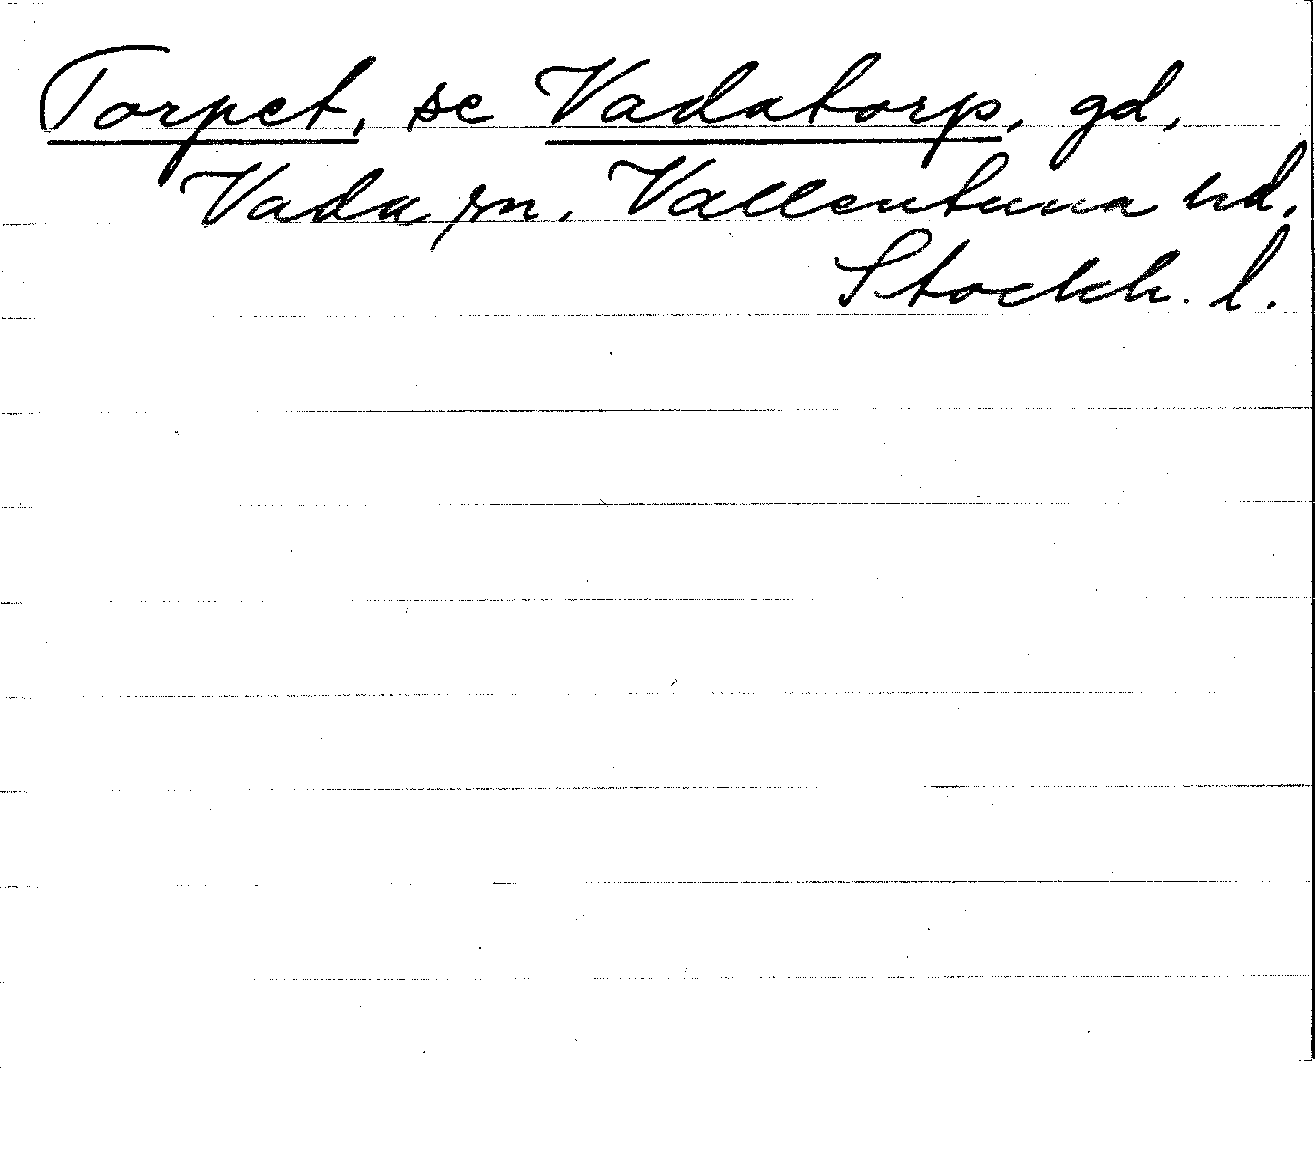 Torpet, se Vadatorp, gd,
Vada sn. Vallentuna hd,
Stockh. l.